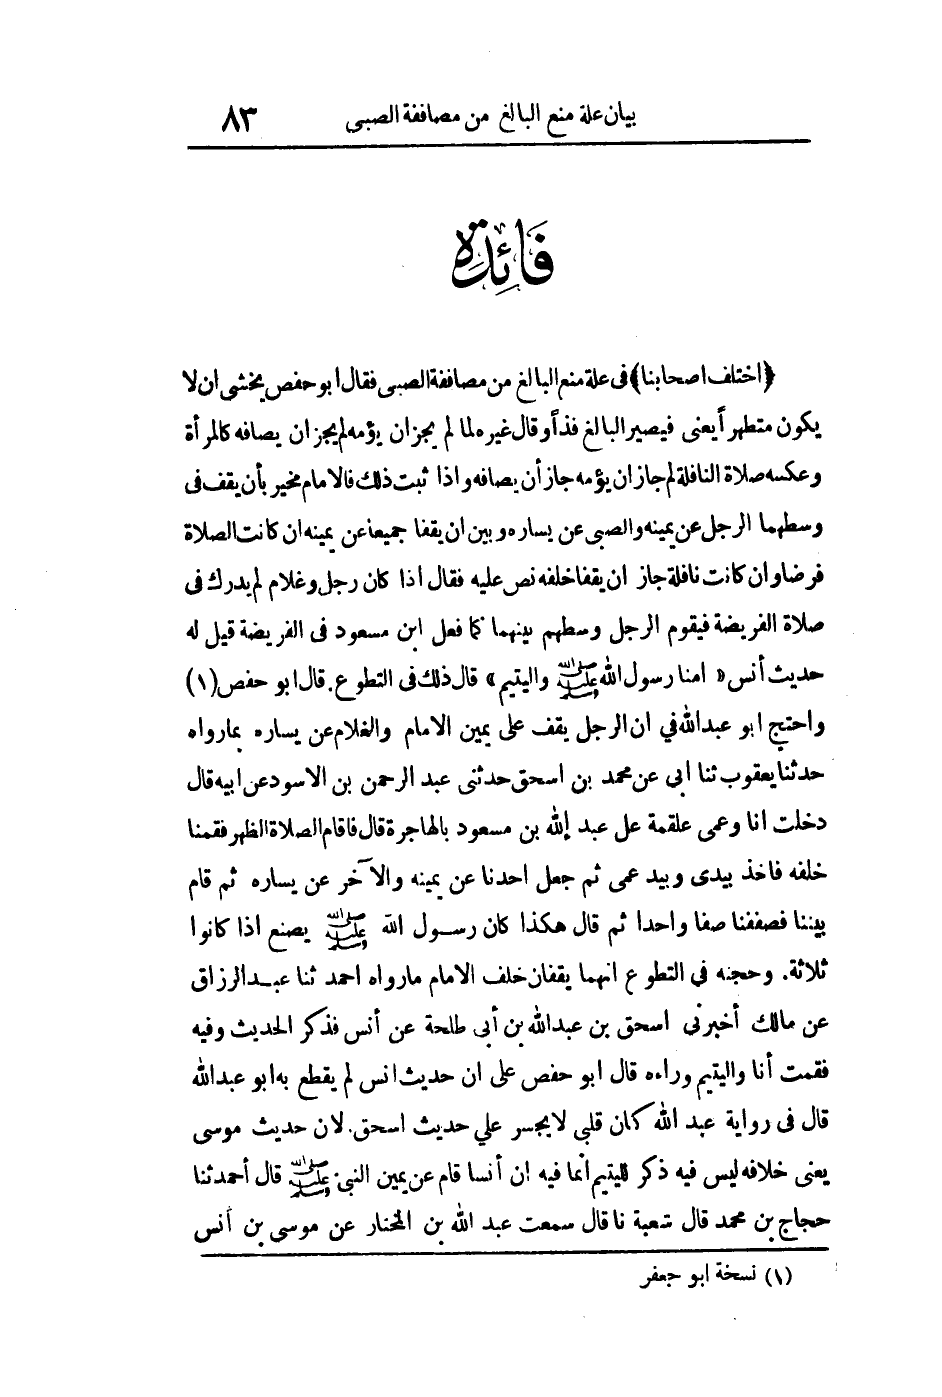 بيان علة منع البالغ من مصاففة الصبى ٨٣
فائدة
﴿ اختلف اصحابنا ﴾ فى علة منع البالغ من مصاففة الصبى فقال ابو حفص يخشى ان لا
يكون متطهراً يعنى فيصير البالغ فذاً وقال غيره لما لم يجز ان يؤمه لم يجز ان يصافه كالمرأة
وعكسه صلاة النافلة لم جاز ان يؤمه جاز أن يصافه واذا ثبت ذلك فالامام مخير بأن يقف فى
وسطهما الرجل عن يمينه والصبى عن يساره وبين ان يقفا جميعا عن يمينه ان كانت الصلاة
فرضا وان كانت نافلة جاز ان يقفا خلفه نص عليه فقال اذا كان رجل وغلام لم يدرك فى
صلاة الفريضة فيقوم الرجل وسطهم بينهما كما فعل ابن مسعود فى الفريضة قيل له
حديث أنس « امنا رسول الله ﷺ واليتيم » قال ذلك فى التطوع. قال ابو حفص (١)
واحتج ابو عبدالله في ان الرجل يقف على يمين الامام والغلام عن يساره بمارواه
حدثنا يعقوب ثنا ابى عن محمد بن اسحق حدثنى عبد الرحمن بن الاسود عن ابيه قال
دخلت انا وعمى علقمة على عبد الله بن مسعود بالهاجرة قال فاقام الصلاة الظهر فقمنا
خلفه فاخذ بيدى وبيد عمى ثم جعل احدنا عن يمينه والآخر عن يساره ثم قام
بيننا فصففنا صفا واحدا ثم قال هكذا كان رسول الله ﷺ يصنع اذا كانوا
ثلاثة. وحجته في التطوع انهما يقفان خلف الامام مارواه احمد ثنا عبد الرزاق
عن مالك أخبرني اسحق بن عبدالله بن أبى طلحة عن أنس فذكر الحديث وفيه
فقمت أنا واليتيم وراءه قال ابو حفص على ان حديث انس لم يقطع به ابو عبدالله
قال فى رواية عبد الله كان قلبى لا يجسر علي حديث اسحق. لان حديث موسى
يعنى خلافه ليس فيه ذكر لليتيم انما فيه ان أنسا قام عن يمين النبى ﷺ قال أحمد ثنا
حجاج بن محمد قال شعبة نا قال سمعت عبد الله بن المختار عن موسى بن أنس
(١) نسخة ابو جعفر